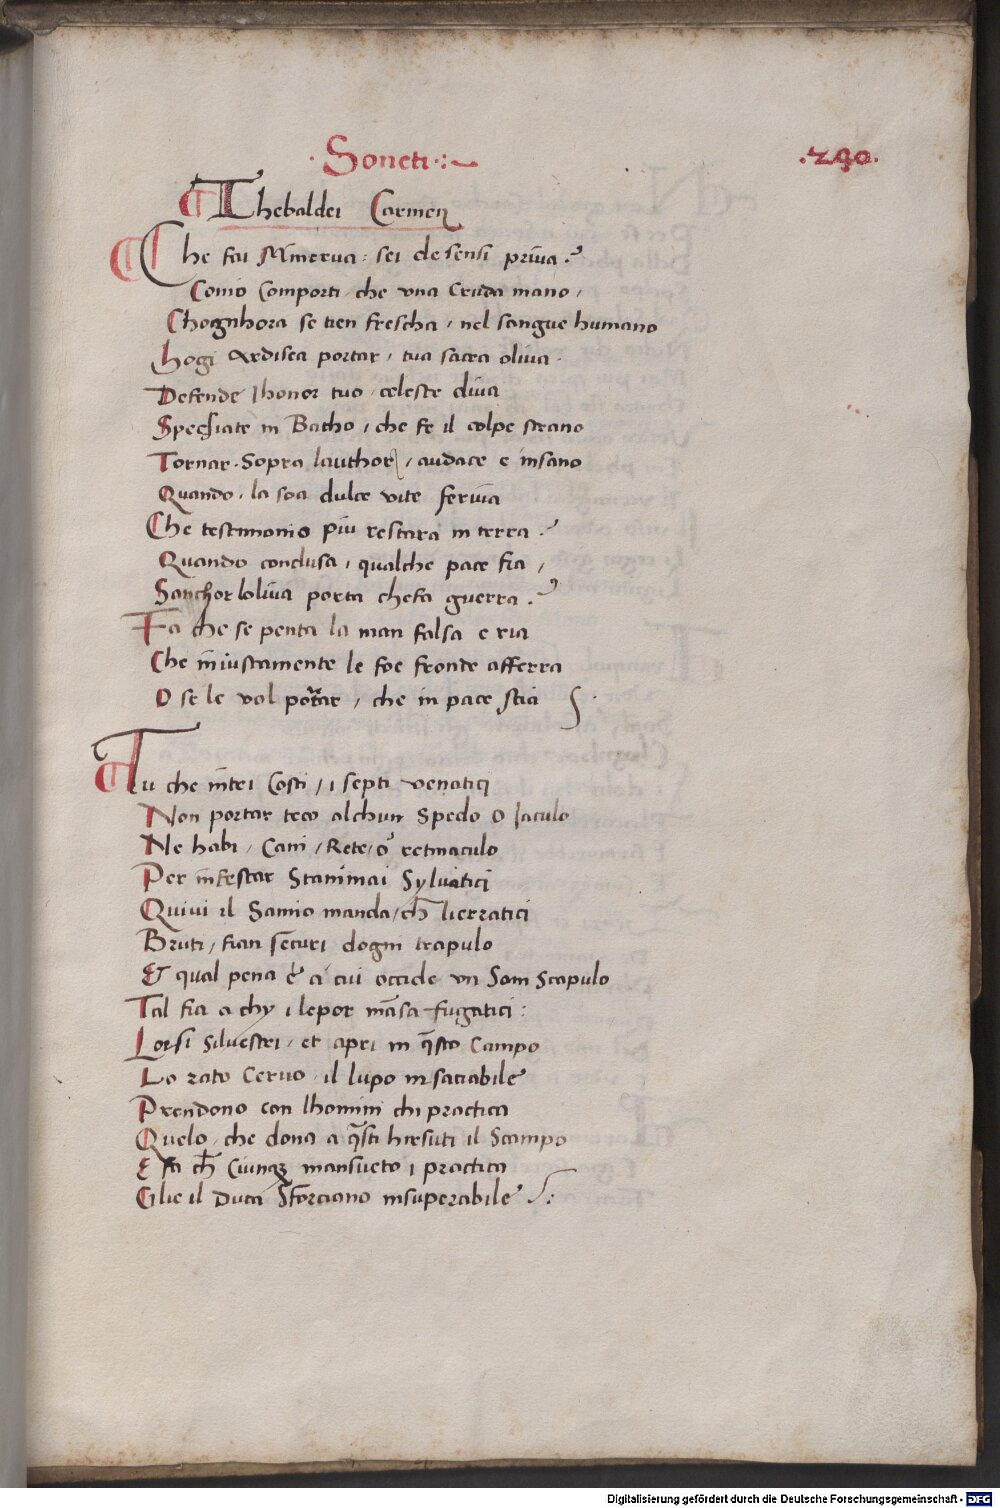 · Soneti ·:~
.290.
Thebaldei Carmen
Che fai Minerva : sei de sensi priva .?
Como Comporti / che una Cruda mano /
Chognhora se tien frescha / nel sangue humano
hogi Ardisca portar / tua sacra oliva ·
Defende lhonor tuo / celeste diva
Spechiate in Bacho / che fe il colpe strano
Tornar · Sopra lauthor / audace e insano
Quando / la soa dulce vite feriva
Che testimonio piu restara in terra .?
Quando conclusa / qualche pace fia /
Sanchor loliva porta chefa guerra .?
Fa che se penta la man falsa e ria
Che iniustamente le foe fronde afferra
O se le vol portar / che in pace stia
Tu che intri Costi / i septi venatici
Non portar teco alchun Spedo o Iaculo
Ne habi / Cani / Rete / o retinaculo
Per infestar Stanimai Sylvatici
Quivi il Samio manda / ch lierratici
Bruti / fian securi dogni trapulo
Et qual pena è a cui occide un Som Scapulo
Tal fia a chy i lepor mansa fugatici :
Lorsi Silvestri / et apri in qsto Campo
La rato Cervo / il lupo insaciabile
Prendono con lhomini chi practica
Quelo / che dona a qsti hirsuti il Scampo
E fa ch Ciunqz mansueto i practica
Glie il Duca Sforciano insuperabile
Digitalisierung gefördert durch die Deutsche Forschungsgemeinschaft - DFG